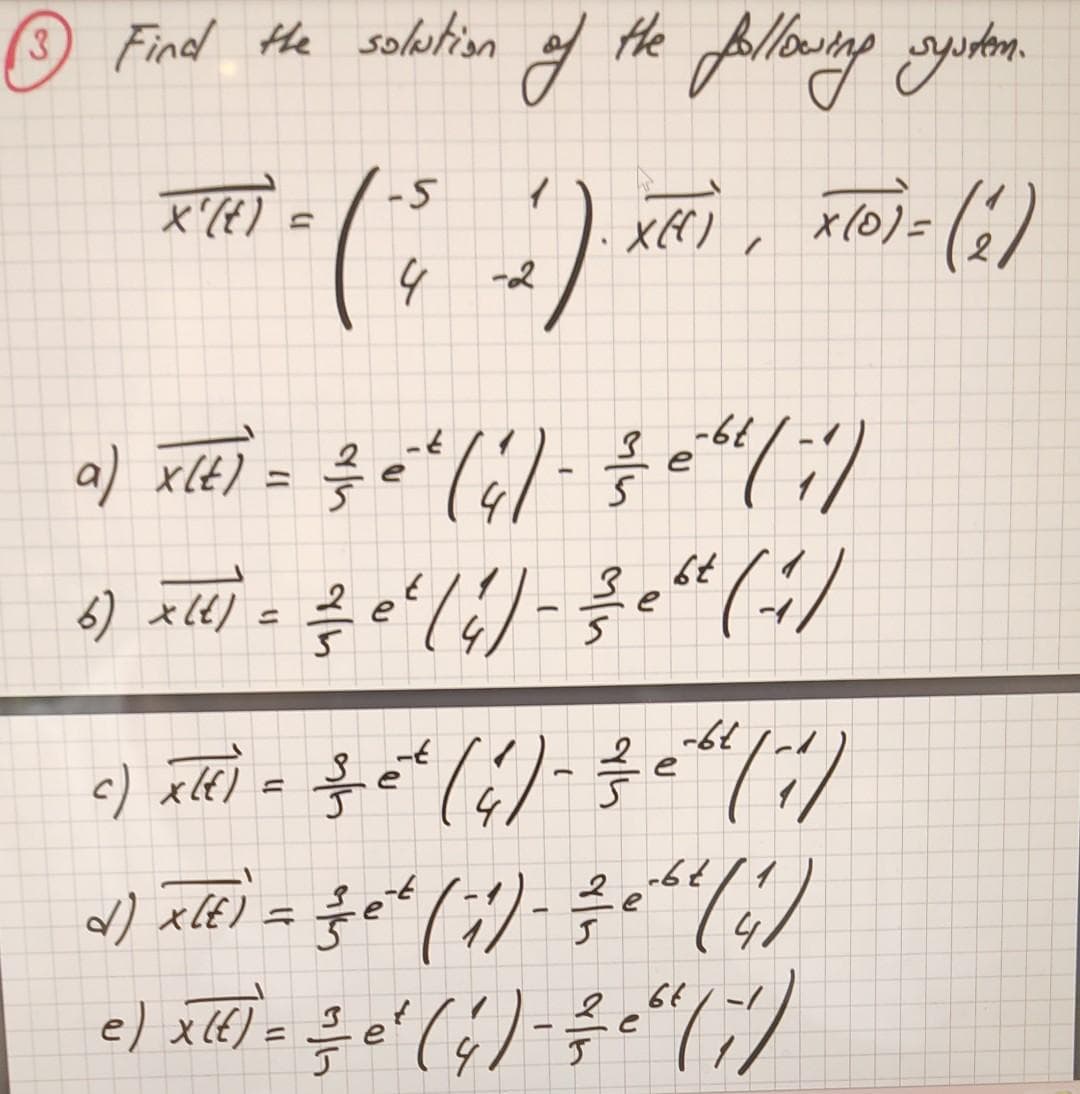 3 Find the solution of the following system.
x'(t) = ( -5 1 ; 4 -2 ) . x(t) , x(0) = ( 1 ; 2 )
a) x(t) = 2/5 e^-t ( 1 ; 4 ) - 3/5 e^-6t ( -1 ; 1 )
b) x(t) = 2/5 e^t ( 1 ; 4 ) - 3/5 e^6t ( 1 ; -1 )
c) x(t) = 3/5 e^-t ( 1 ; 4 ) - 2/5 e^-6t ( -1 ; 1 )
d) x(t) = 3/5 e^-t ( -1 ; 1 ) - 2/5 e^-6t ( 1 ; 4 )
e) x(t) = 3/5 e^t ( 1 ; 4 ) - 2/5 e^6t ( -1 ; 1 )